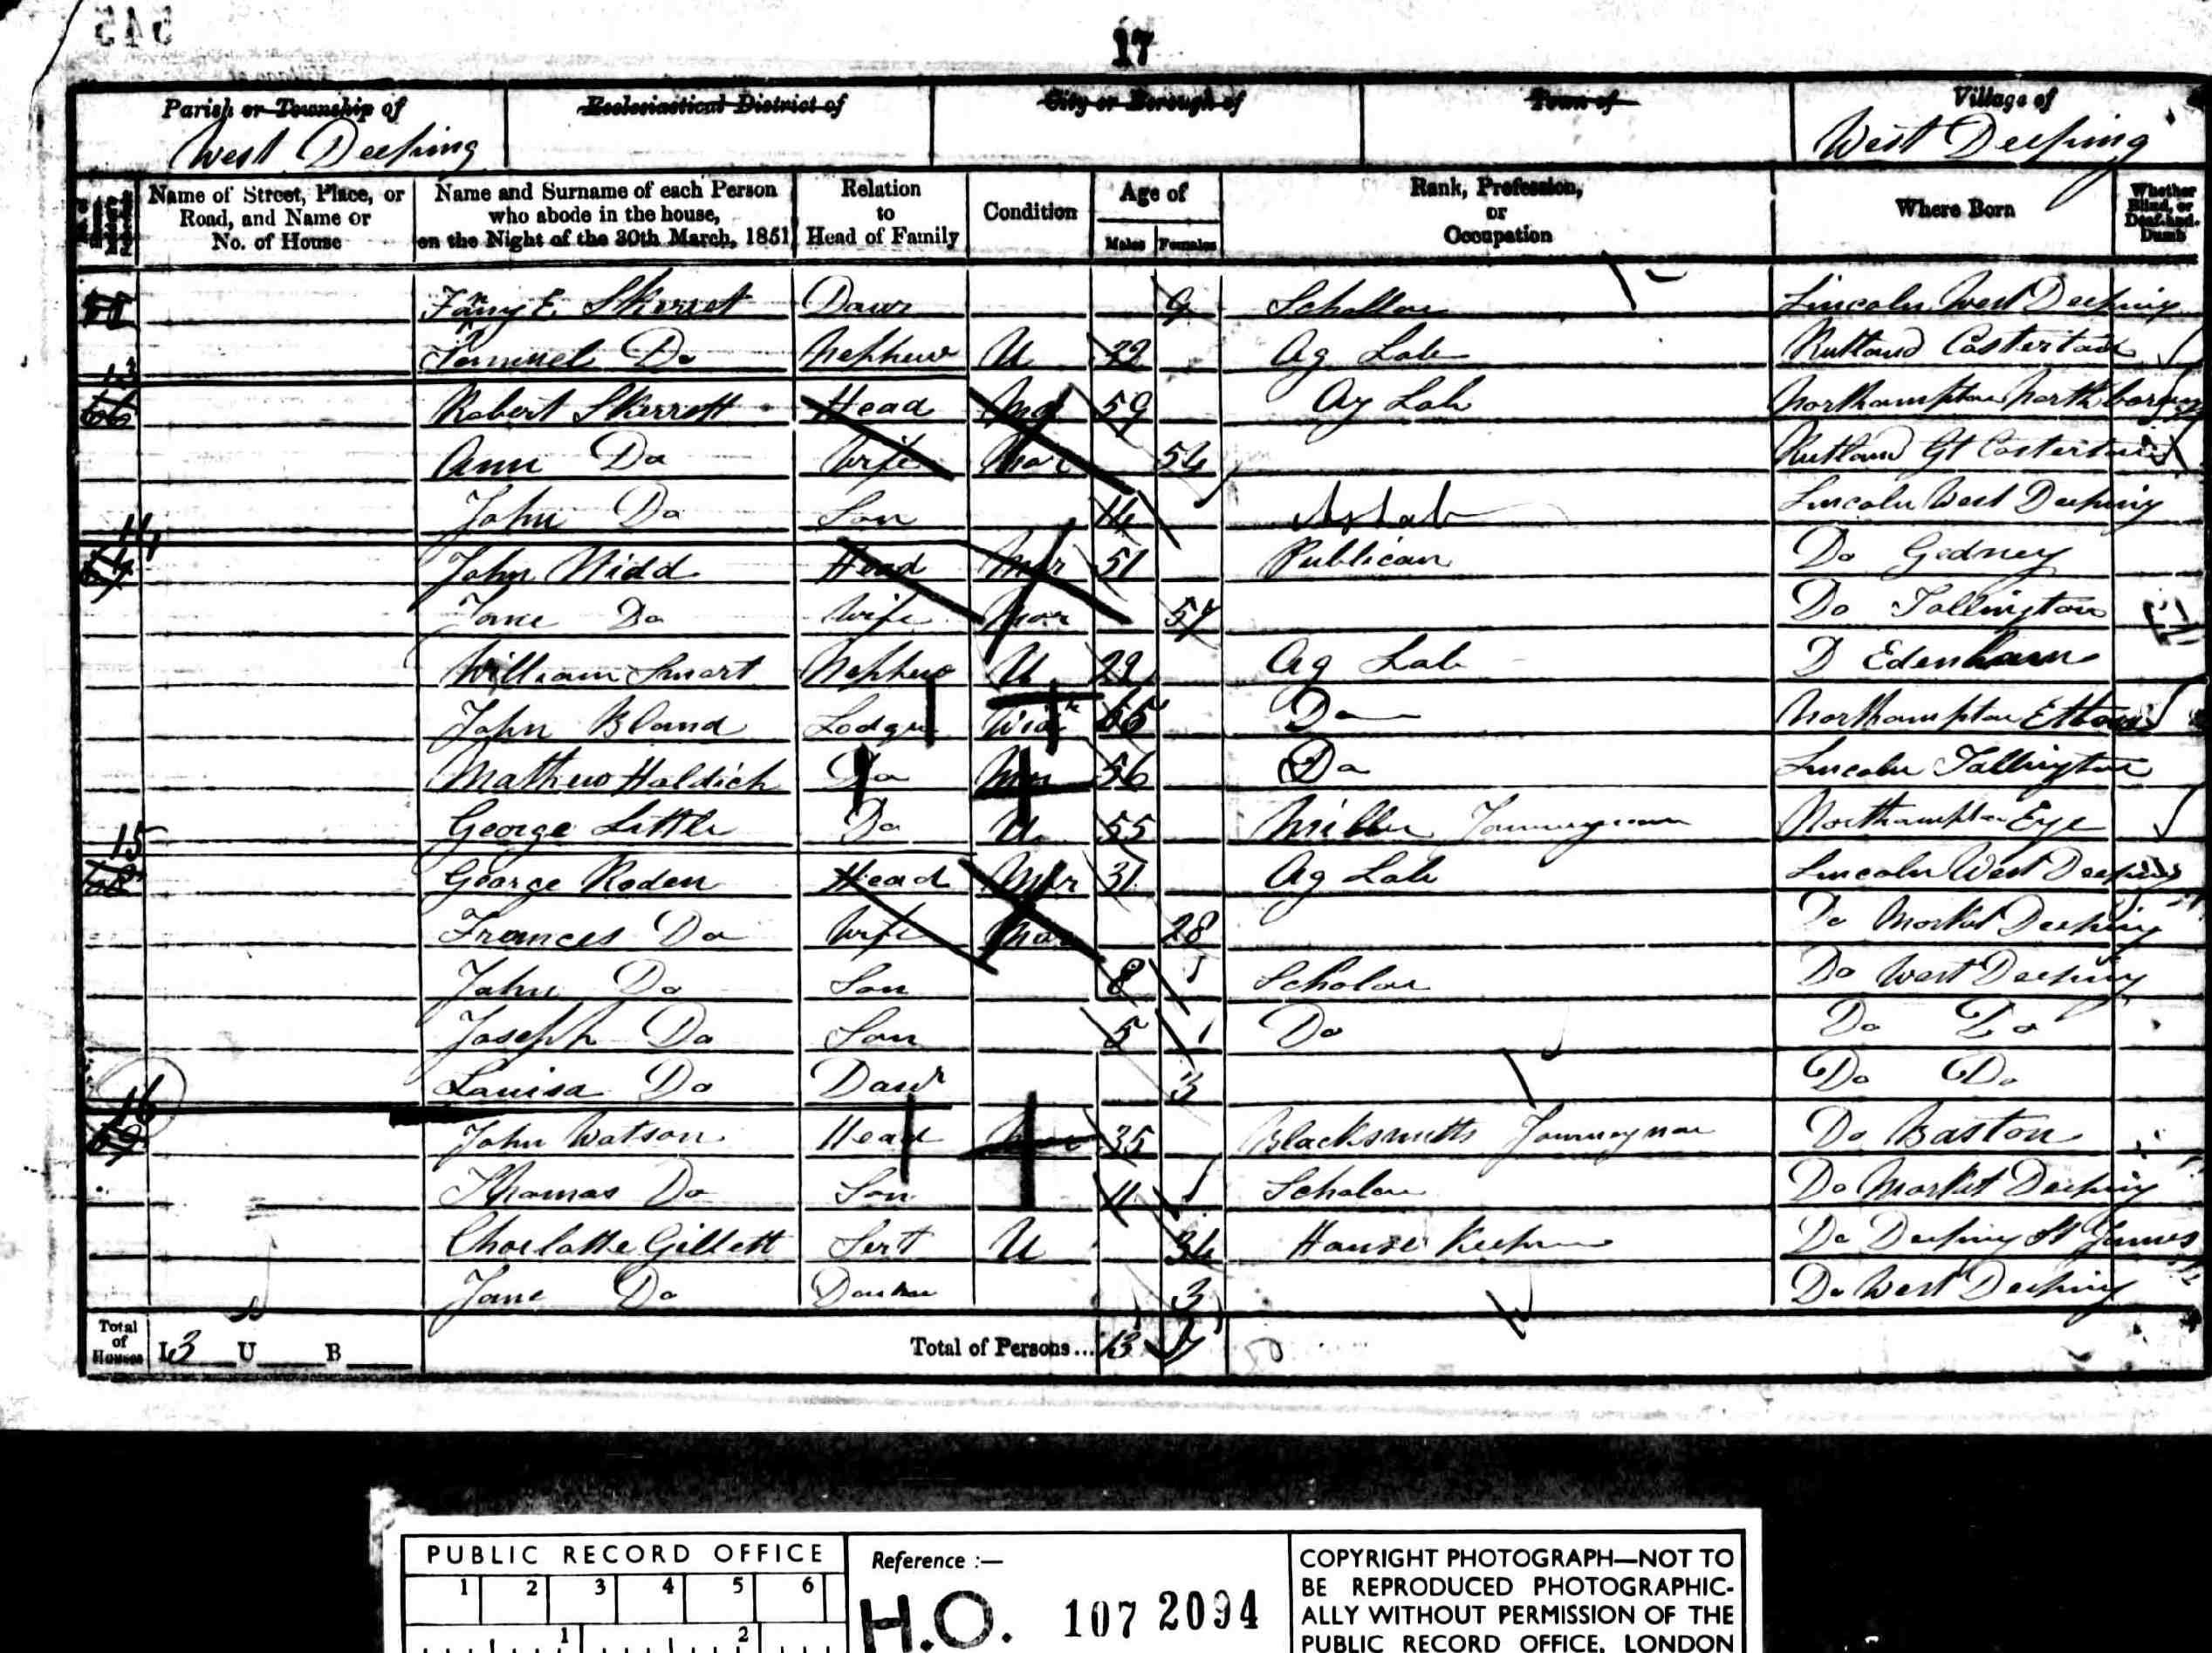 545
17
Parish or Township of
West Deeping
Ecclesiastical District of
City or Borough of
Town of
Village of
West Deeping
Name of Street, Place, or Road, and Name or No. of House
Name and Surname of each Person who abode in the house, on the Night of the 30th March, 1851
Relation to Head of Family
Condition
Age of
Males Females
Rank, Profession, or Occupation
Where Born
Whether Blind, or Deaf-and-Dumb
Fanny E Skerret Daur 9 Schollar Lincoln West Deeping
Samuel Do Nephew U 22 Ag Lab Rutland Casterton
13
Robert Skerrett Head Mar 59 Ag Lab Northampton Northborough
Ann Do Wife Mar 54 Rutland Gt Casterton
John Do Son 14 Ag Lab Lincoln West Deeping
14
John Nidd Head Mar 51 Publican Do Gedney
Jane Do Wife Mar 57 Do Tallington
William Smart Nephew U 22 Ag Lab D Edenham
John Bland Lodger Widr 65 Do Northampton Etton
Mathew Holdich Do Mar 56 Do Lincoln Tallington
George Little Do U 55 Miller Journeyman Northampton Eye
15
George Roden Head Mar 31 Ag Lab Lincoln West Deeping
Frances Do Wife Mar 28 Do Market Deeping
John Do Son 8 Scholar Do West Deeping
Joseph Do Son 5 Do Do Do
Louisa Do Daur 3 Do Do
16
John Watson Head Mar 35 Blacksmith Journeyman Do Baston
Thomas Do Son 11 Scholar Do Market Deeping
Charlotte Gillett Sert U 34 House Keeper Do Deeping St James
Jane Do 3 Do West Deeping
Total of Houses I 3 U B Total of Persons... 13 7
PUBLIC RECORD OFFICE
1 2 3 4 5 6
1 2
Reference :—
H.O. 107 2094
COPYRIGHT PHOTOGRAPH—NOT TO
BE REPRODUCED PHOTOGRAPHIC-
ALLY WITHOUT PERMISSION OF THE
PUBLIC RECORD OFFICE, LONDON